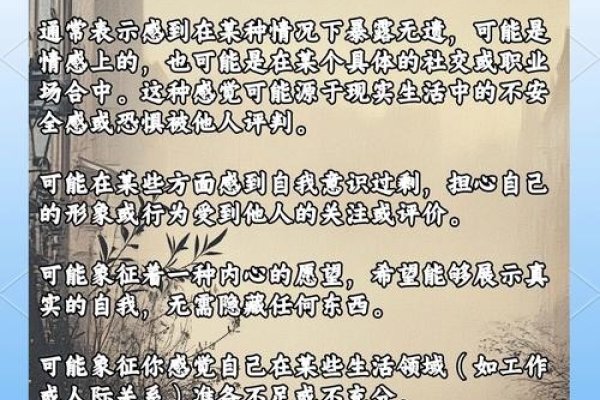 通常表示感到在某种情况下暴露无遗，可能是
情感上的，也可能是在某个具体的社交或职业
场合中。这种感觉可能源于现实生活中的不安
全感或恐惧被他人评判。
可能在某些方面感到自我意识过剩，担心自己
的形象或行为受到他人的关注或评价。
可能象征着一种内心的愿望，希望能够展示真
实的自我，无需隐藏任何东西。
可能象征你感觉自己在某些生活领域（如工作
或人际关系）准备不足或不充分。